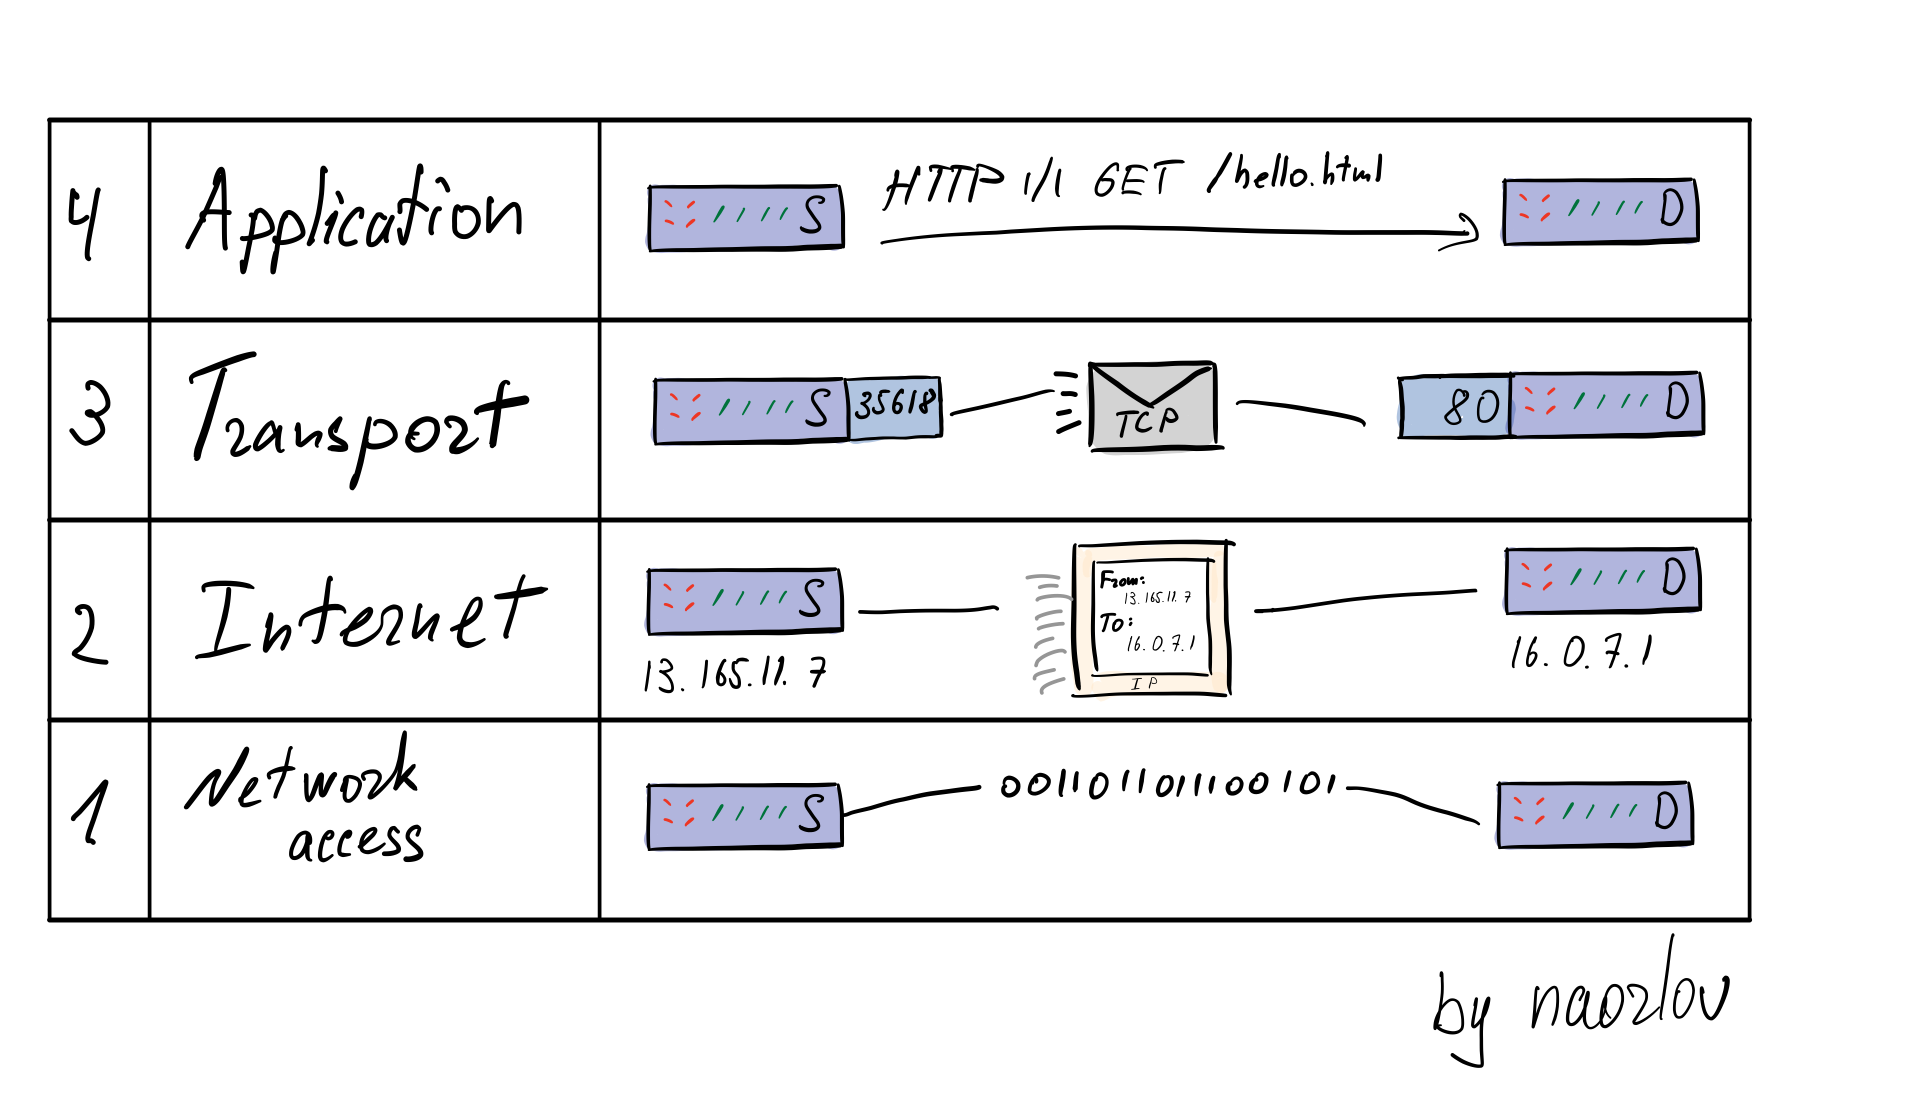 4
Application
S
HTTP 1/1 GET /hello.html
D
3
Transport
S
35618
TCP
80
D
2
Internet
S
13.165.11.7
From:
13.165.11.7
To:
16.0.7.1
IP
D
16.0.7.1
1
Network
access
S
0011011011100101
D
by naozlov